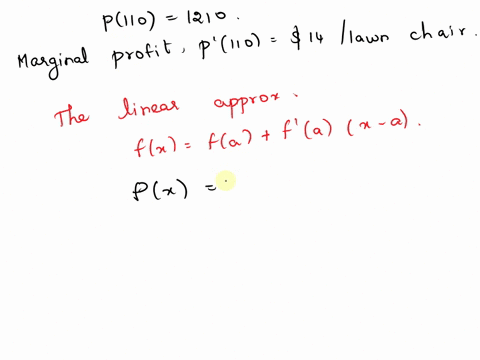 P(110) = 1210.
Marginal profit, p'(110) = $14 /lawn chair.
The linear approx.
f(x) = f(a) + f'(a) (x-a).
P(x) =